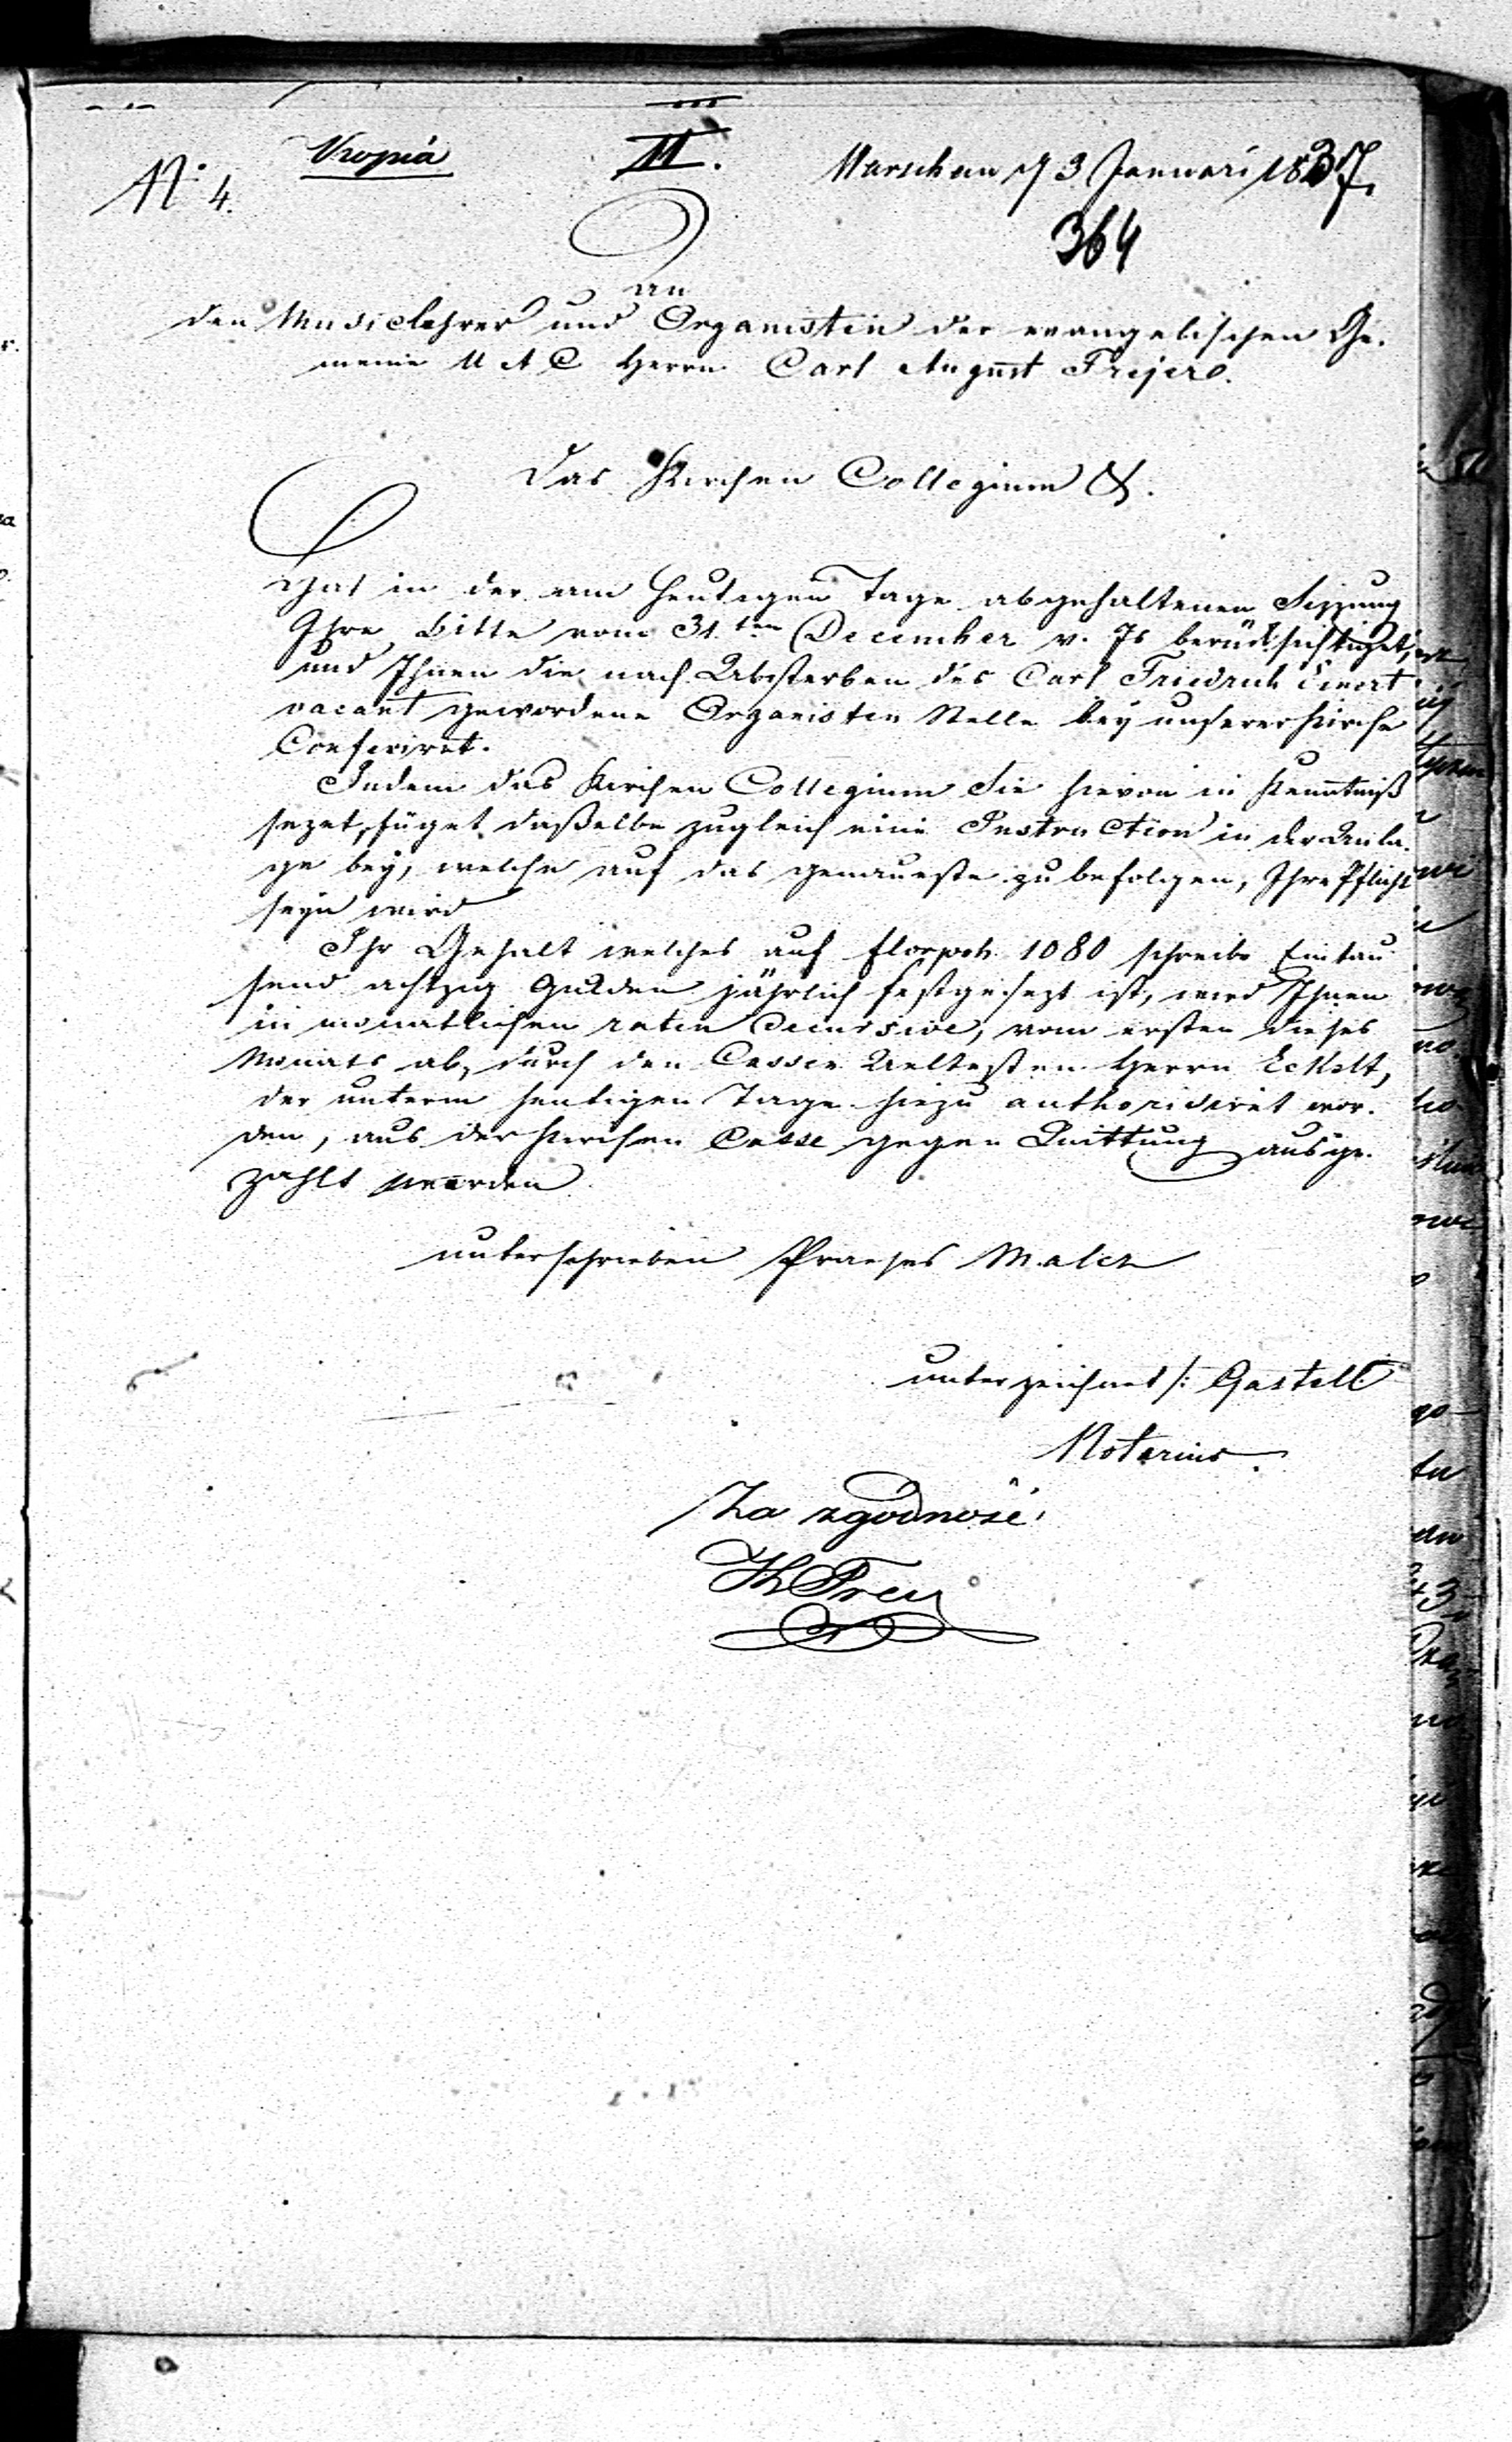 N: 4.
Kopia
II.
Warschau d 3 Januari 1837.
364
An
den Musiclehrer und Organisten der evangelischen Ge-
meine U A C Herrn Carl August Frejer.
Das Kirchen Collegium &.
hat in der am heutigen Tage abgehaltenen Sizzung
Ihre Bitte vom 31.ten December v. Js berücksichtiget,
und Ihnen die nach Absterben des Carl Friedrich Einert
vacant gewordene Organisten Stelle bey unserer Kirche
Conferiret.
Indem das Kirchen Collegium Sie hievon in Kenntniß
sezet, füget daßelbe zugleich eine Instruction in der Anla-
ge bey, welche auf das genaueste zu befolgen, Ihre Pflicht
seyn wird
Ihr Gehalt welches auf flor poh. 1080 schreibe Eintau
send achtzig Gulden jährlich festgesezt ist, wird Ihnen
in monatlichen raten decursive, vom ersten dieses
Monats ab, durch den Cassen Aeltesten Herrn Eckelt,
der unterm heutigen Tage hiezu authorisiret wor-
den, aus der Kirchen Casse gegen Quittung ausge-
zahlt werden
unterschrieben Praeses Malcz
unterzeichnet /: Gastell
Notarius.
Za zgodność